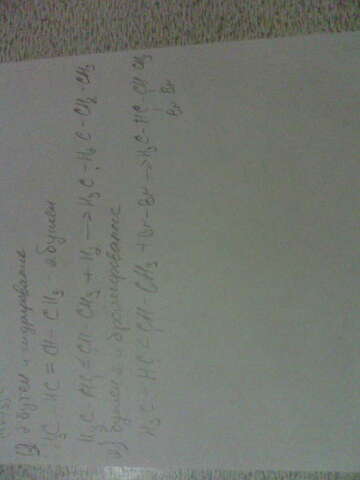 2 бутен и гидрирование
H₃C - HC = CH - CH₃ - 2 бутен
H₃C - HC = CH - CH₃ + H₂ → H₃C - H₂C - CH₂ - CH₃
бутен 2 и бромирование
H₃C - HC = CH - CH₃ + Br - Br → H₃C - HC - CH - CH₃
Br Br